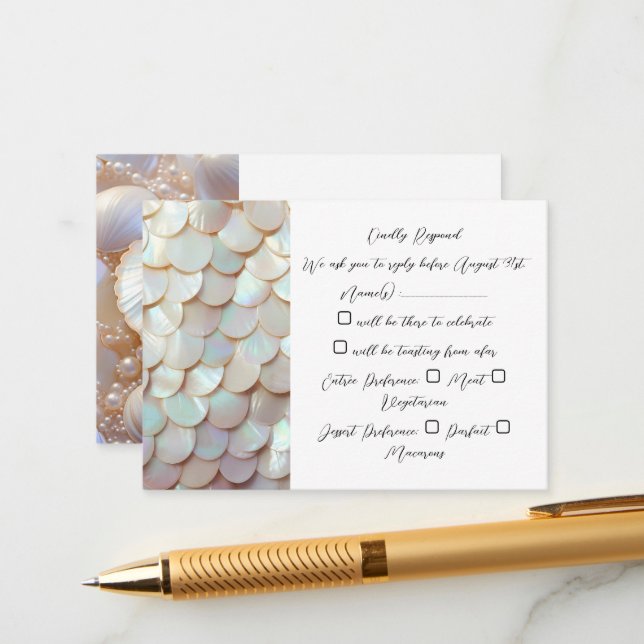 Kindly Respond
We ask you to reply before August 31st.
Name(s) :_______________
☐ will be there to celebrate
☐ will be toasting from afar
Entrée Preference: ☐ Meat ☐
Vegetarian
Dessert Preference: ☐ Parfait ☐
Macarons